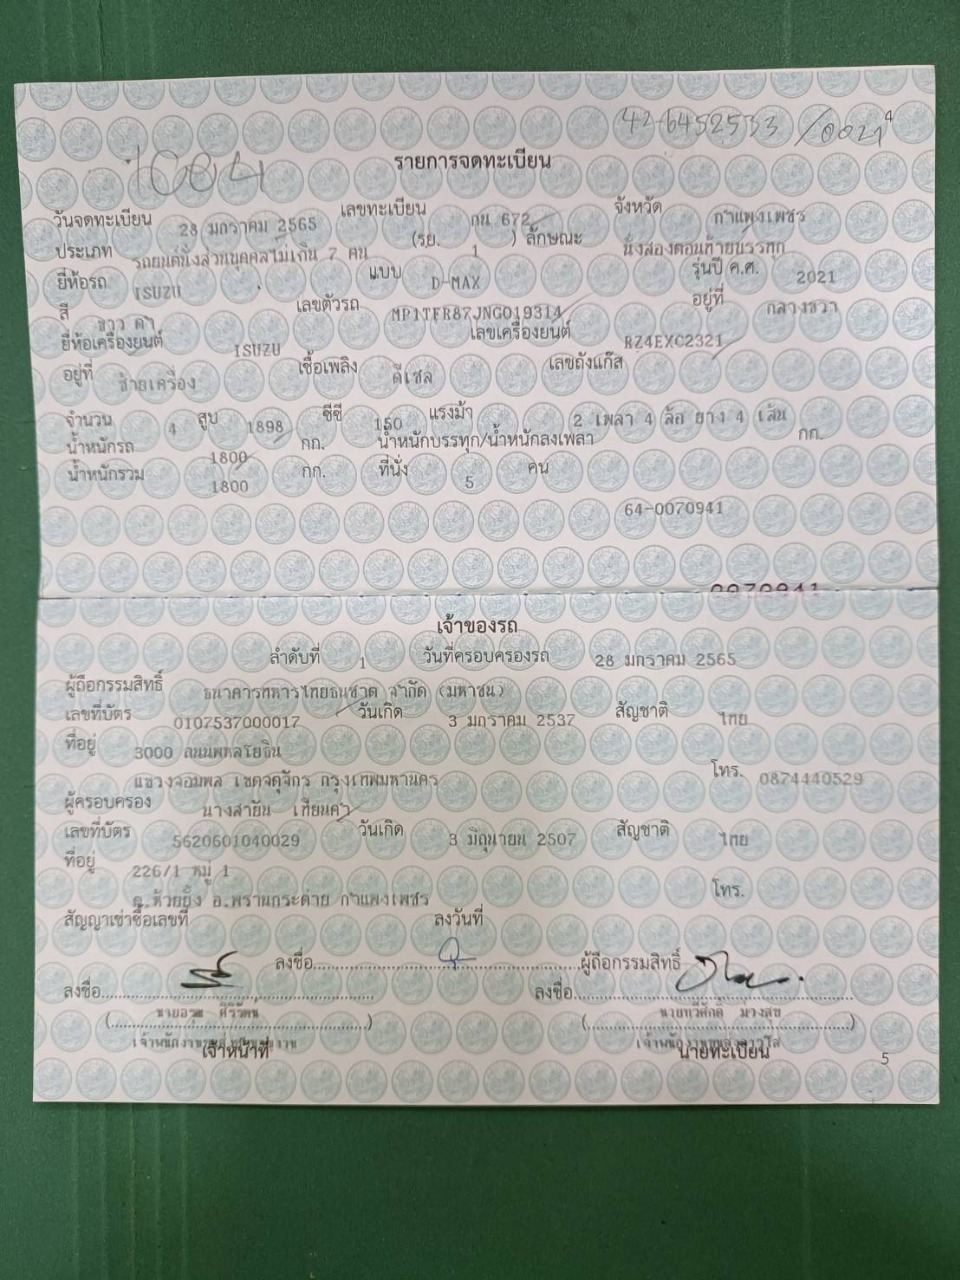 42-6452533 /0021
1004
รายการจดทะเบียน
วันจดทะเบียน 28 มกราคม 2565 เลขทะเบียน กน 672 จังหวัด กำแพงเพชร
ประเภท รถยนต์นั่งส่วนบุคคลไม่เกิน 7 คน (รย. 1 ) ลักษณะ นั่งสองตอนท้ายบรรทุก
ยี่ห้อรถ ISUZU แบบ D-MAX รุ่นปี ค.ศ. 2021
สี ขาว ดำ เลขตัวรถ MP1TFR87JNG019314 อยู่ที่ กลางขวา
ยี่ห้อเครื่องยนต์ ISUZU เลขเครื่องยนต์ RZ4EXC2321
อยู่ที่ ซ้ายเครื่อง เชื้อเพลิง ดีเซล เลขถังแก๊ส
จำนวน 4 สูบ 1898 ซีซี 150 แรงม้า 2 เพลา 4 ล้อ ยาง 4 เส้น
น้ำหนักรถ 1800 กก. น้ำหนักบรรทุก/น้ำหนักลงเพลา กก.
น้ำหนักรวม 1800 กก. ที่นั่ง 5 คน
64-0070941
0070941
เจ้าของรถ
ลำดับที่ 1 วันที่ครอบครองรถ 28 มกราคม 2565
ผู้ถือกรรมสิทธิ์ ธนาคารทหารไทยธนชาต จำกัด (มหาชน)
เลขที่บัตร 0107537000017 วันเกิด 3 มกราคม 2537 สัญชาติ ไทย
ที่อยู่ 3000 ถนนพหลโยธิน
แขวงจอมพล เขตจตุจักร กรุงเทพมหานคร โทร. 0874440529
ผู้ครอบครอง นางสายัน เทียนคำ
เลขที่บัตร 5620601040029 วันเกิด 3 มิถุนายน 2507 สัญชาติ ไทย
ที่อยู่ 226/1 หมู่ 1
ต.ห้วยยั้ง อ.พรานกระต่าย กำแพงเพชร โทร.
สัญญาเช่าซื้อเลขที่ ลงวันที่
ลงชื่อ ผู้ถือกรรมสิทธิ์
ลงชื่อ ลงชื่อ
( ศิริรัตน์ ) (นายทวีศักดิ์ ม่วงสุข)
เจ้าหน้าที่ นายทะเบียน
5